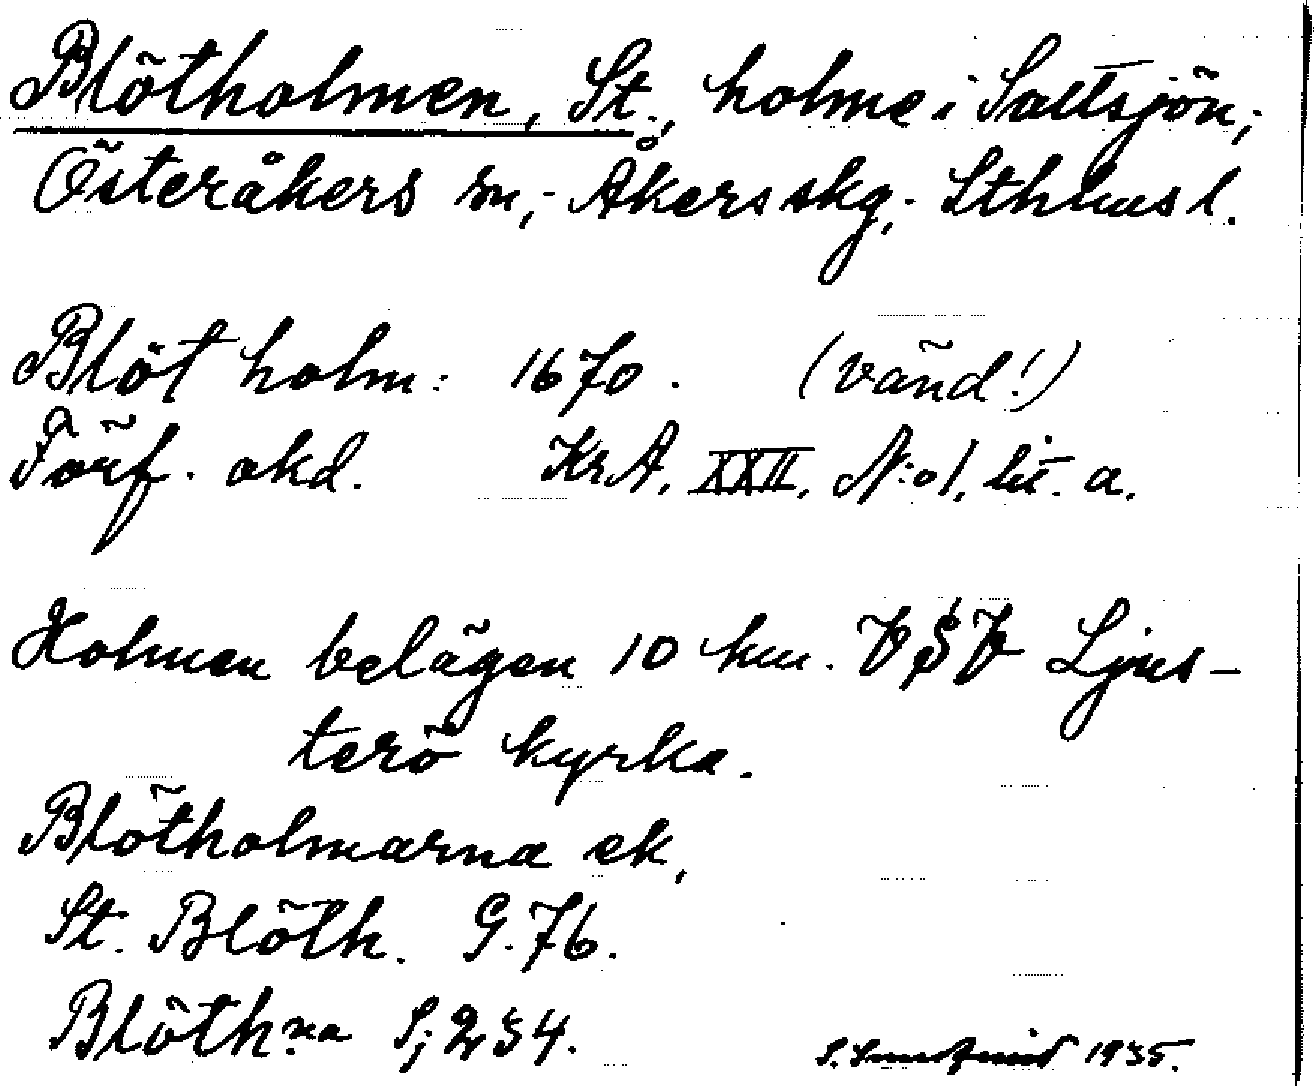 Blötholmen, St., holme i Saltsjön;
Österåkers sn,- Åkers skg,- Sthlms l.
Blöt holm: 1670. (vänd!)
Förf. okd. KrA, XXII, N:o 1, lit. a.
Holmen belägen 10 km. VSV Ljus-
terö kyrka.
Blötholmarna ek,
St. Blöth. G. 76.
Blöth:na S; 234.
S. 1935.